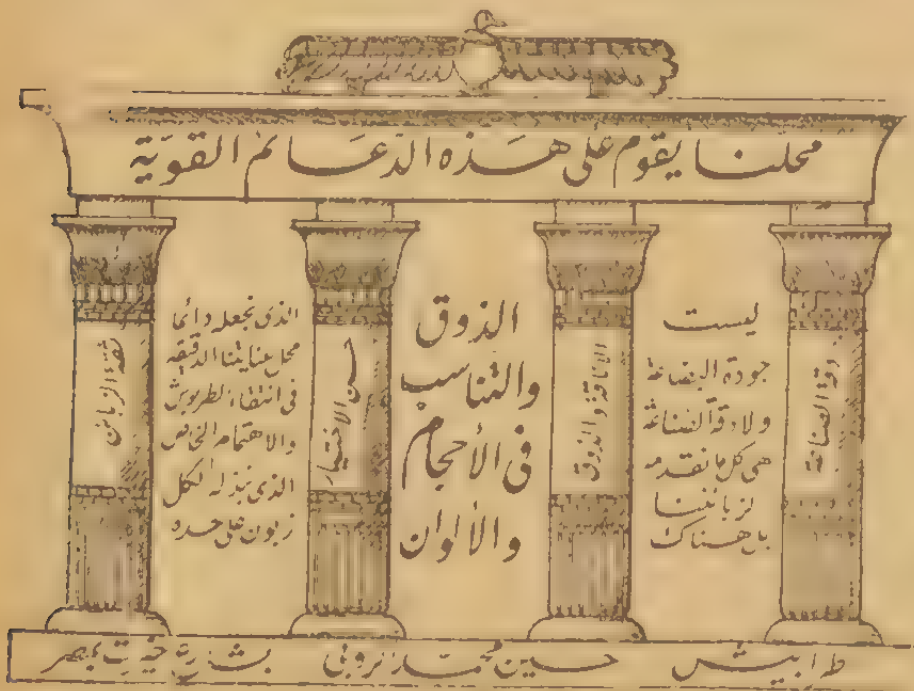 محلنا يقوم على هذه الدعائم القوية
دقة الصناعة
ليست
جودة البضاعة
ولا دقة الصناعة
هى كل ما نقدمه
لزبائننا
بل هناك
الاناقة والذوق
الذوق
والتناسب
فى الأحجام
والألوان
حسن الاختيار
الذى نجعله دائما
محل عنايتنا الدقيقه
فى انتقاء الطربوش
والاهتمام الخاص
الذى نبذله لكل
زبون على حده
ثقة الزبائن
طرابيش حسين محمد بشارع بمصر